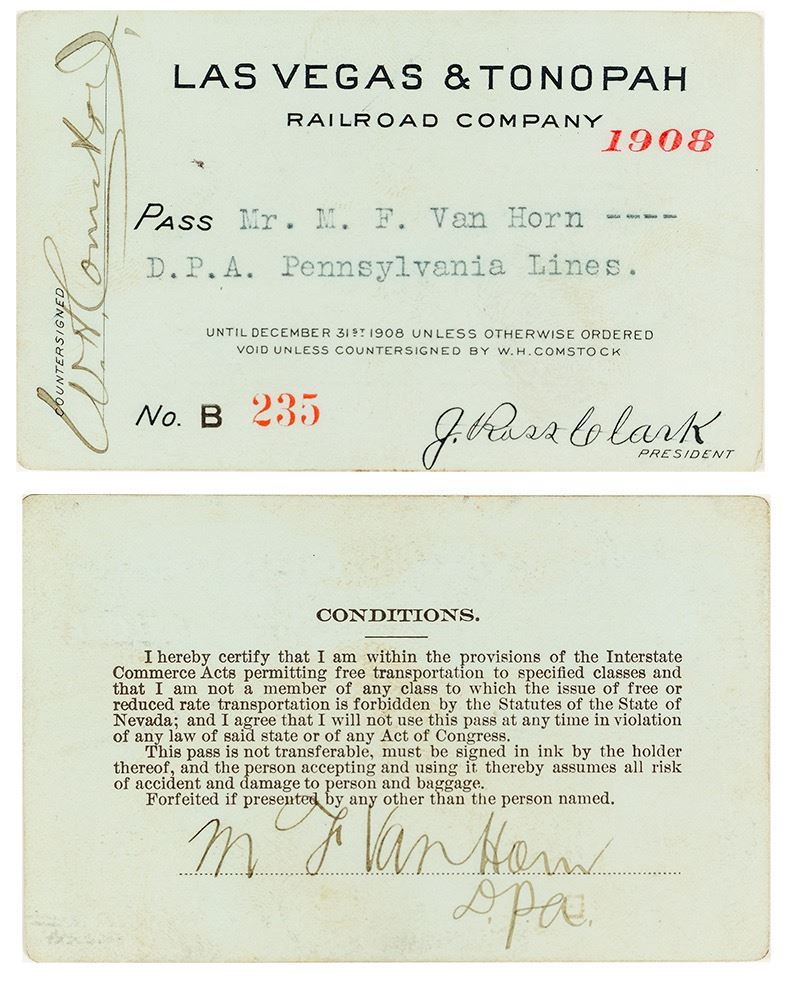 LAS VEGAS & TONOPAH
RAILROAD COMPANY
1908
PASS Mr. M. F. Van Horn ----
D.P.A. Pennsylvania Lines.
UNTIL DECEMBER 31ST 1908 UNLESS OTHERWISE ORDERED
VOID UNLESS COUNTERSIGNED BY W.H. COMSTOCK
No. B 235
J. Ross Clark
PRESIDENT
COUNTERSIGNED
W. H. Comstock
CONDITIONS.
I hereby certify that I am within the provisions of the Interstate
Commerce Acts permitting free transportation to specified classes and
that I am not a member of any class to which the issue of free or
reduced rate transportation is forbidden by the Statutes of the State of
Nevada; and I agree that I will not use this pass at any time in violation
of any law of said state or of any Act of Congress.
This pass is not transferable, must be signed in ink by the holder
thereof, and the person accepting and using it thereby assumes all risk
of accident and damage to person and baggage.
Forfeited if presented by any other than the person named.
M F Van Horn
D.P.A.